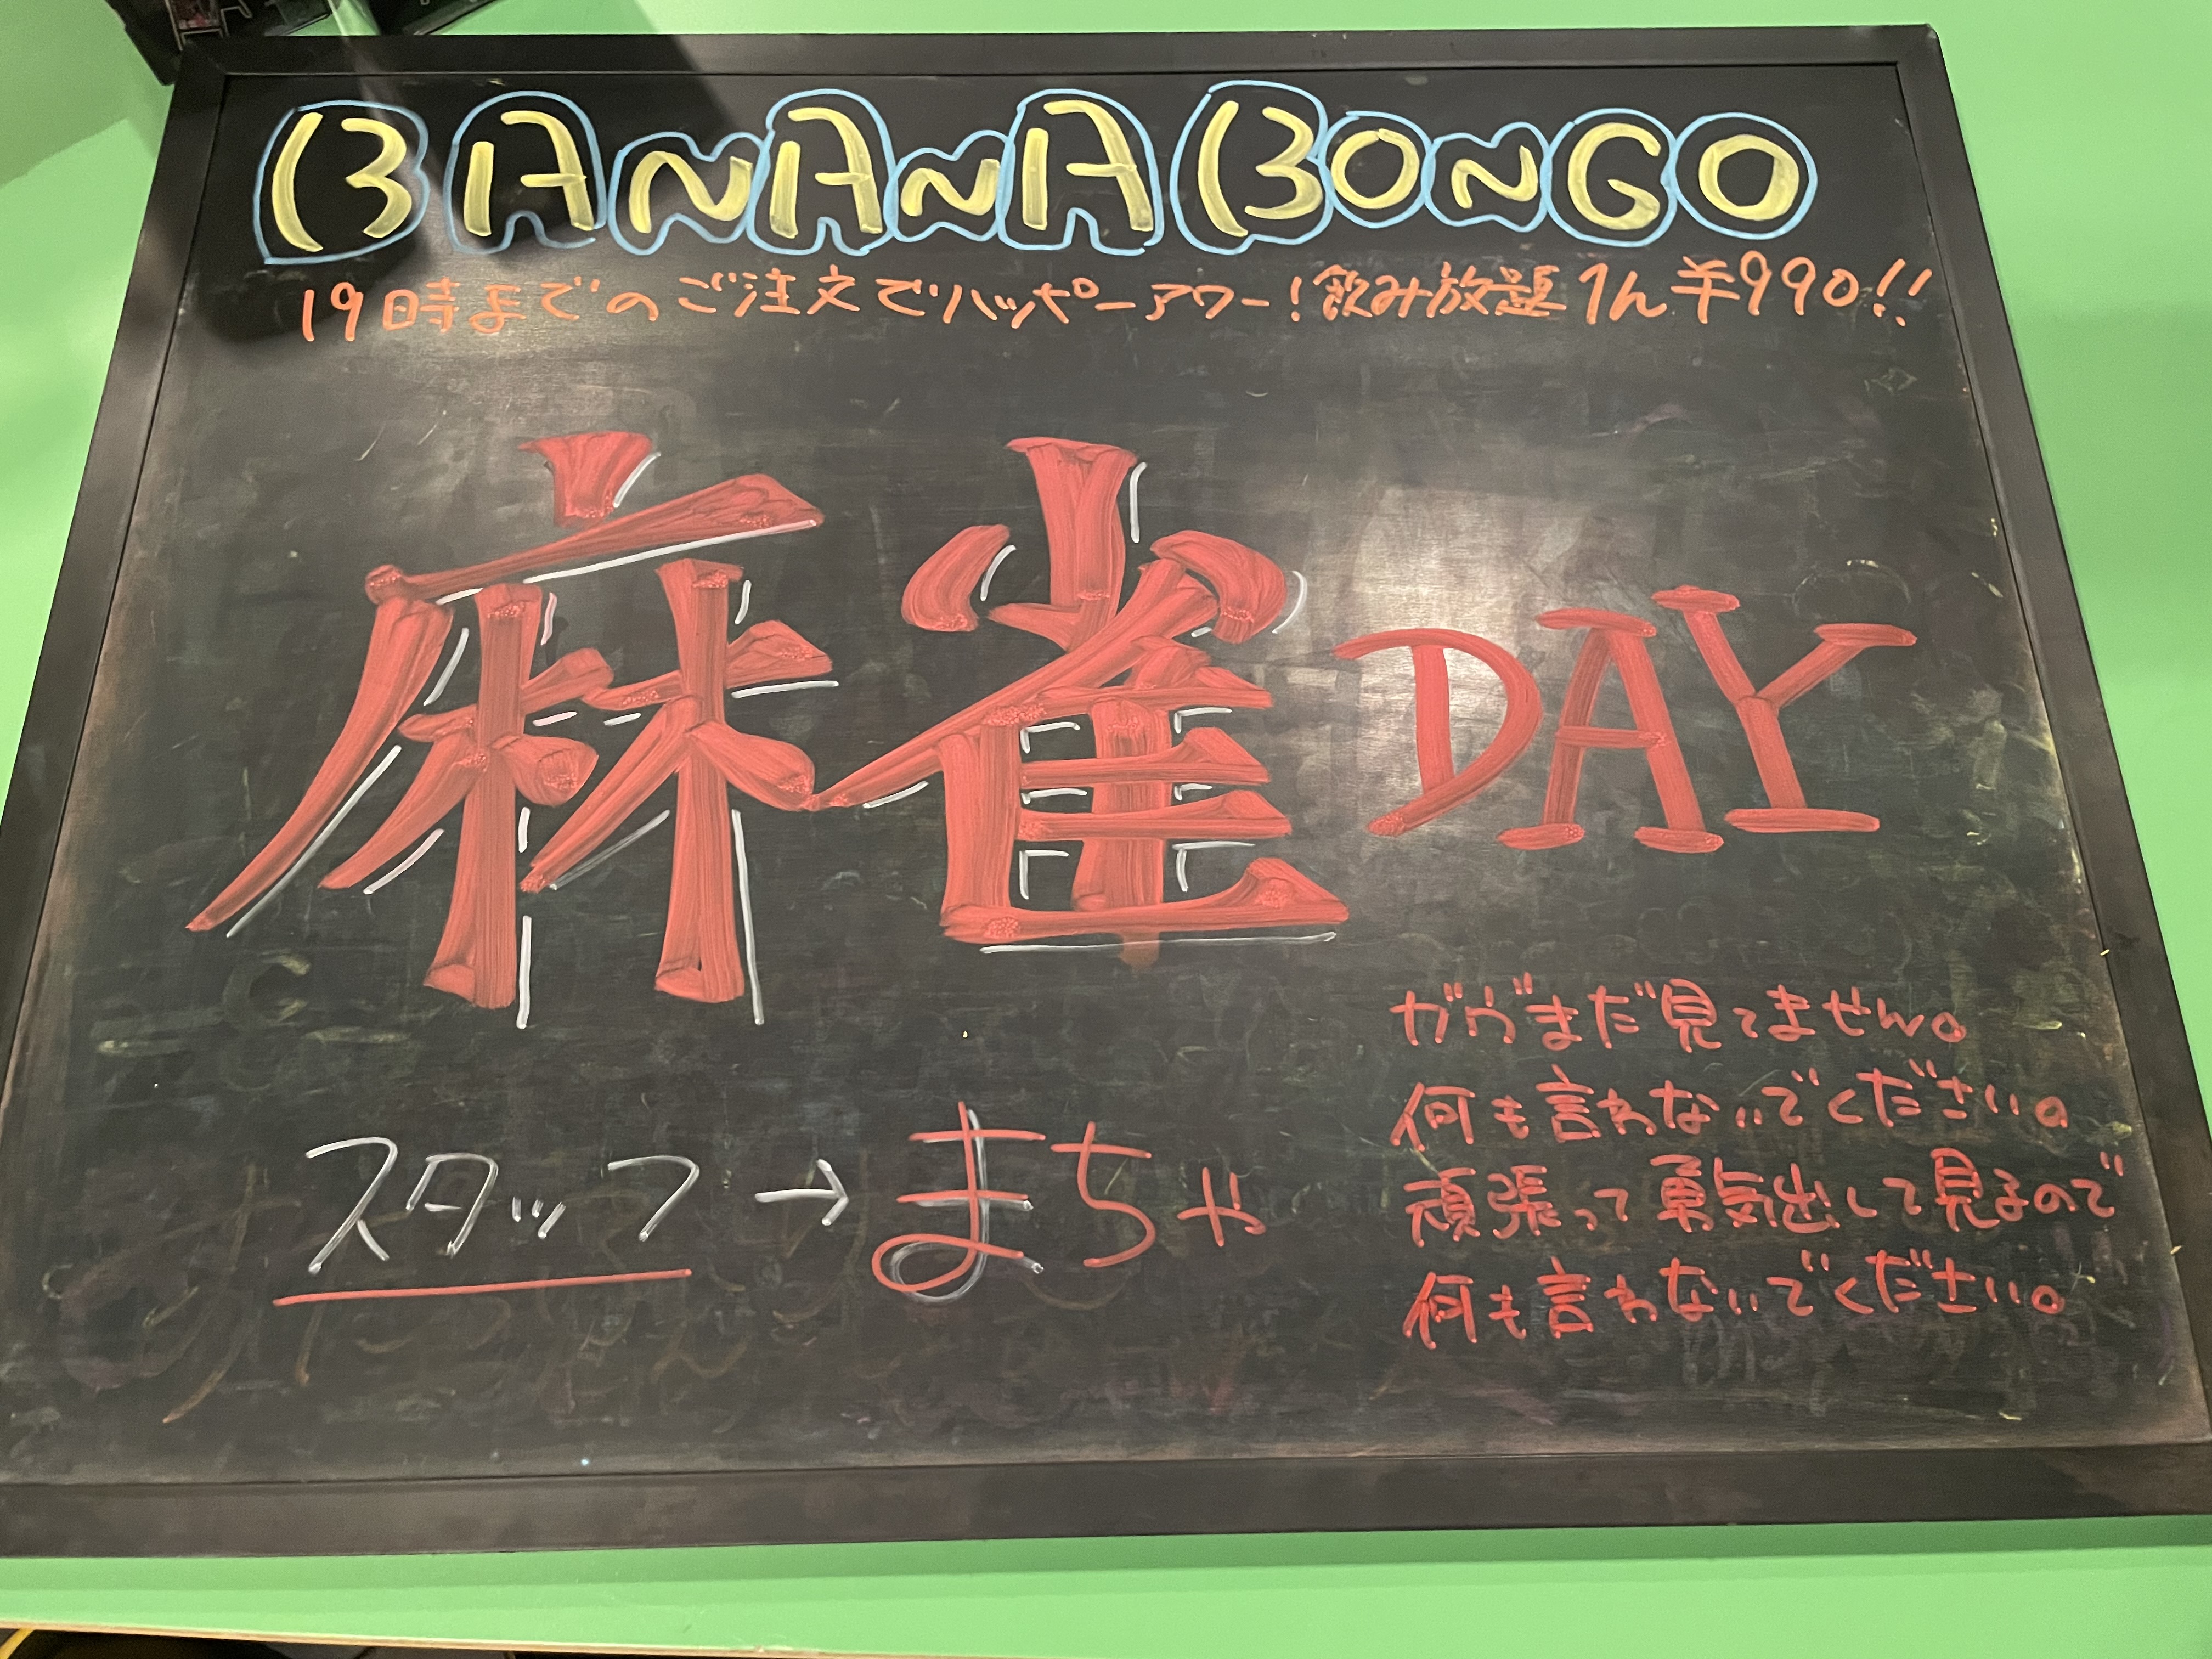 BANANA BONGO
19時までのご注文でハッピーアワー!飲み放題1h¥990!!
麻雀DAY
ガヴまだ見てません。
何も言わないでください。
頑張って勇気出して見るので
何も言わないでください。
スタッフ→まちゃ